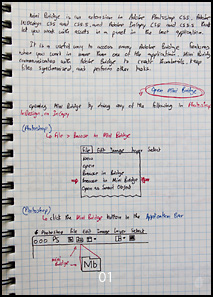 Mini Bridge is an extension in Adobe Photoshop CS5, Adobe
InDesign CS5 and CS5.5, and Adobe InCopy CS5 and CS5.5 that
let you work with assets in a panel in the host application.
It is a useful way to access many Adobe Bridge features
when you work in more than one of the application. Mini Bridge
communicates with Adobe Bridge to create thumbnails, keep
files synchronized and perform other tasks.
Open Mini Bridge
Opening Mini Bridge by doing any of the following in Photoshop,
InDesign, or InCopy
(Photoshop)
file > Browse in Mini Bridge
File Edit Image Layer Select
New
Open
Browse in Bridge
Browse in Mini Bridge
Open as Smart Object
(Photoshop)
click the Mini Bridge button in the Application Bar
Photoshop File Edit Image Layer Select
PS
Mini Bridge
Mb
01